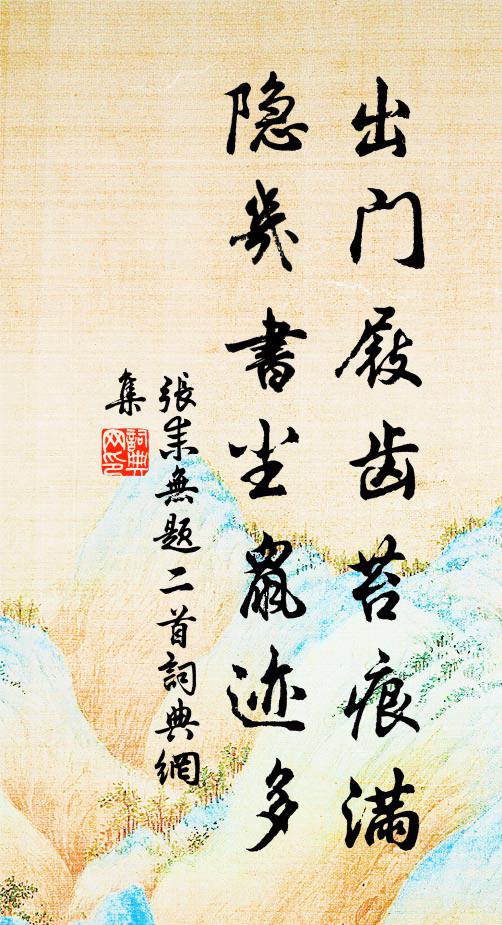 出门屐齿苔痕满
隐几书尘鼠迹多
張耒無題二首詞典網
集
詞典
网印